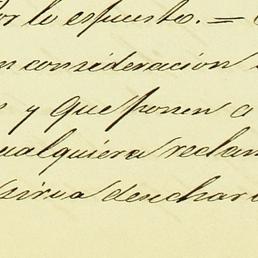 Por lo espuesto. =
en consideración
y que ponen a
cualquiera reclam
sirva desechar